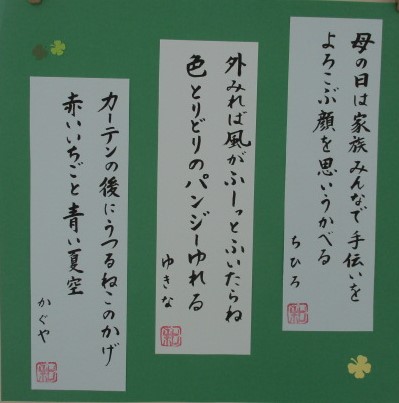 母の日は家族みんなで手伝いを
よろこぶ顔を思いうかべる
ちひろ
外みれば風がふーっとふいたらね
色とりどりのパンジーゆれる
ゆきな
カーテンの後にうつるねこのかげ
赤いいちごと青い夏空
かぐや